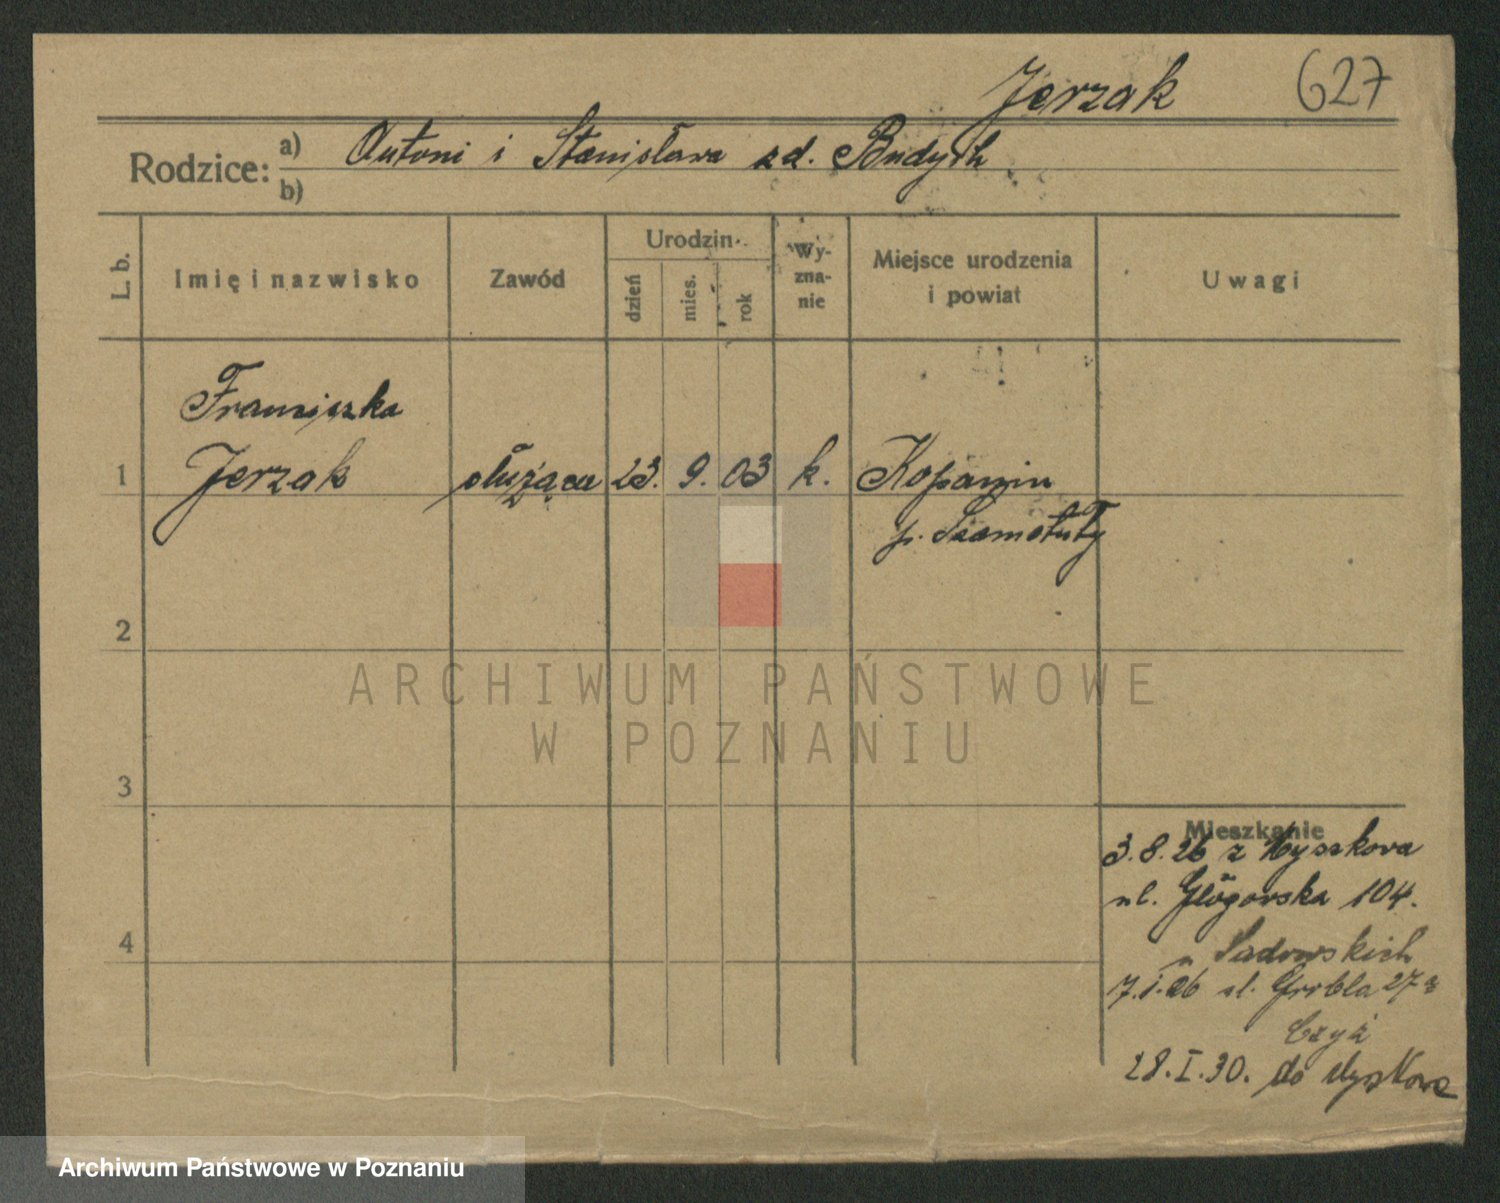 Jerzak 627
Rodzice: a) Antoni i Stanisława zd. Budych
b)
L. b.
Imię i nazwisko
Zawód
Urodzin
dzień
mies.
rok
Wy-
zna-
nie
Miejsce urodzenia
i powiat
Uwagi
Franciszka
1 Jerzak służąca 23. 9. 03 k. Kopanin
p. Szamotuły
2
ARCHIWUM PAŃSTWOWE
W POZNANIU
3
Mieszkanie
3.8.26 z
ul. Głogowska 104.
4
u Sadowskich
ul. Grobla 27a
Czyż
28.I.30. do
Archiwum Państwowe w Poznaniu